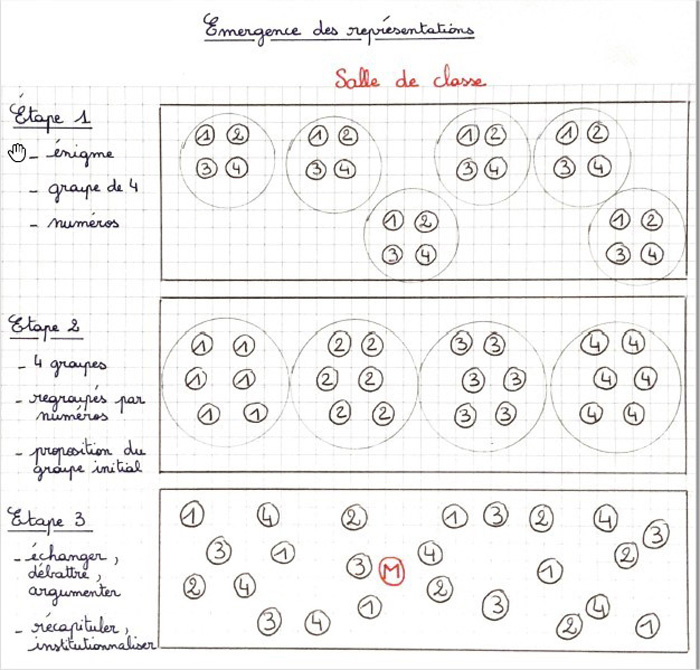 Emergence des représentations
Salle de classe
Étape 1
- énigme
- groupe de 4
- numéros
1 2 1 2 1 2 1 2
3 4 3 4 3 4 3 4
1 2 1 2
3 4 3 4
Etape 2
- 4 groupes
- regroupés par
numéros
- proposition du
groupe initial
1 1 2 2 3 3 4 4
1 1 2 2 3 3 4 4
1 1 2 2 3 3 4 4
Etape 3
- échanger,
débattre,
argumenter
- récapituler,
institutionnaliser
1 4 2 1 3 2 4 3
3 1 3 M 4 1 2
2 4 1 2 3 4
3 4 2 1